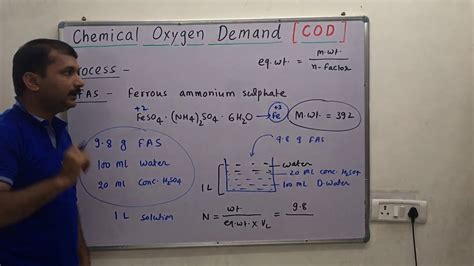 Chemical Oxygen Demand [COD]
eq.wt. = m.wt. / n-factor
Process -
FAS - Ferrous ammonium sulphate
+2 +3
FeSO4·(NH4)2SO4·6H2O → Fe M.wt = 392
9.8 g FAS
100 ml water
20 ml conc. H2SO4
1 L solution
9.8 g FAS
water
20 ml conc. H2SO4
100 ml D.water
1L
N = wt. / eq.wt × VL = 9.8